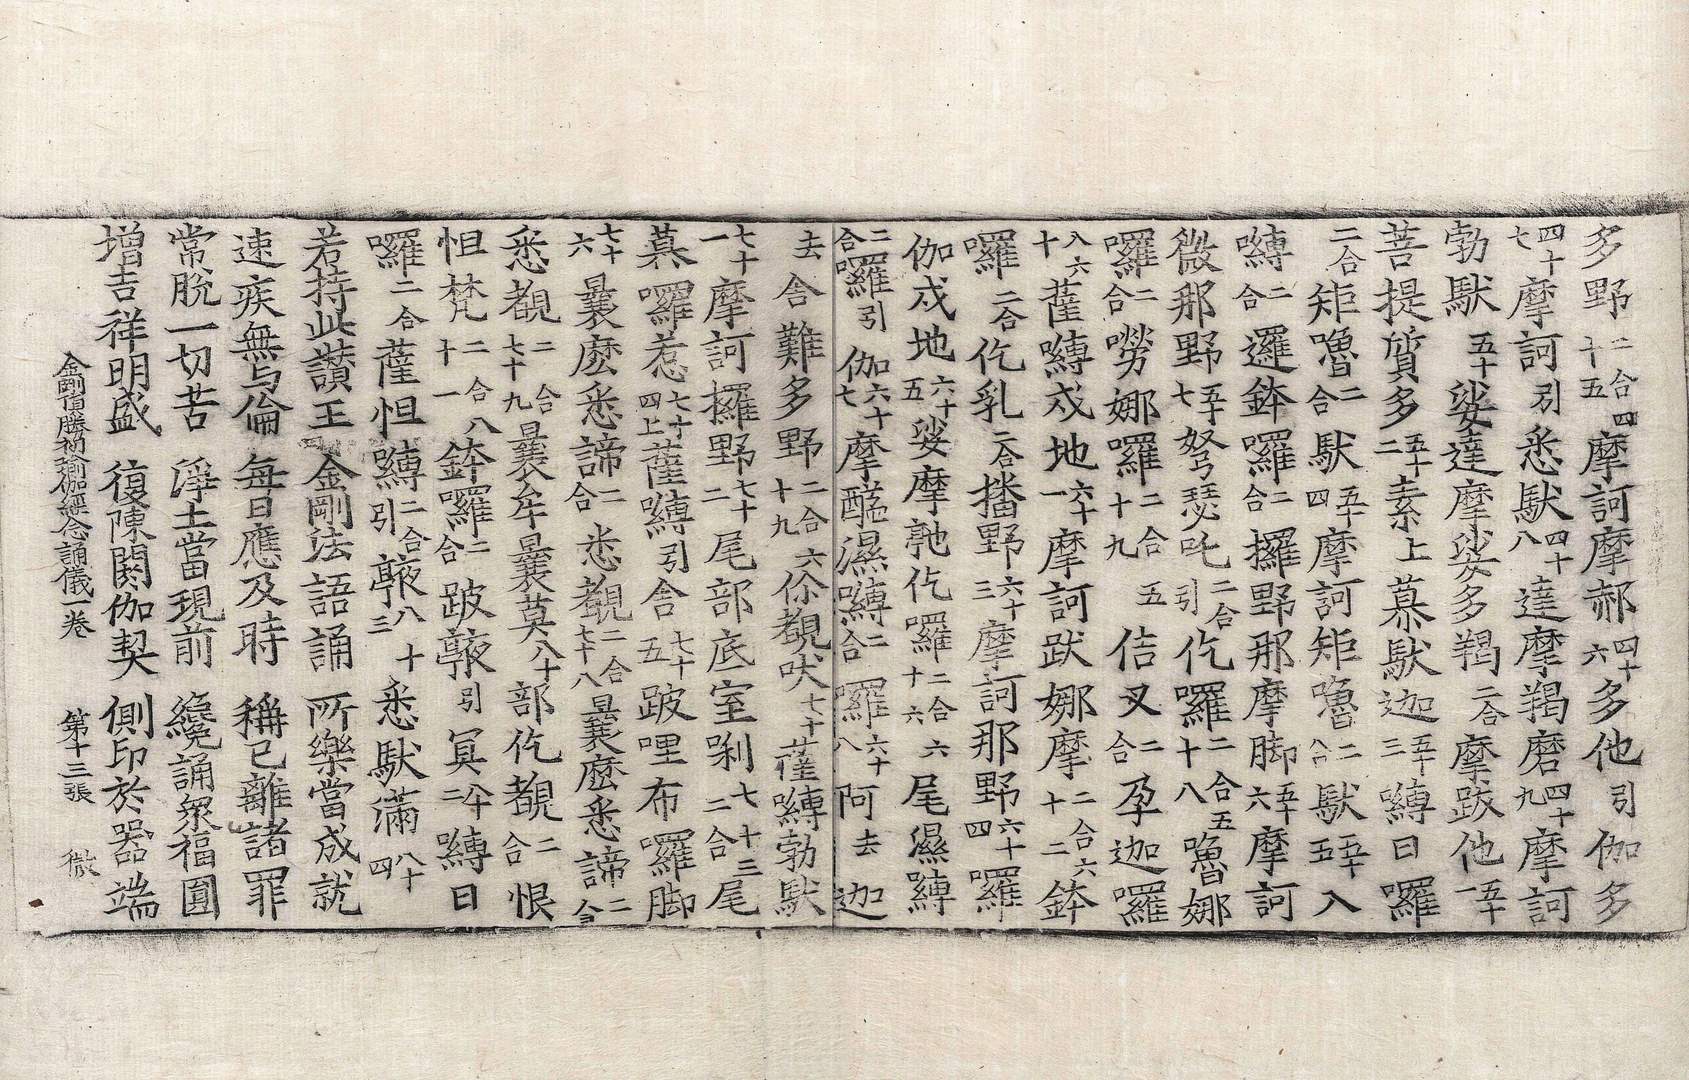 多野二合四十五摩訶摩郝四十六多他引伽多
四十七摩訶引悉馱四十八達摩羯磨四十九摩訶
勃馱五十娑達摩娑多羯二合摩跋他五十一
菩提質多五十二素上慕馱迦五十三嚩日囉
二合矩嚕二合馱五十四摩訶矩嚕二合馱五十五入
嚩二合邏鉢囉二合攞野那摩脚五十六摩訶
微那野五十七弩瑟吒二合引仡囉二合五十八嚕娜
囉二合嘮娜囉二合五十九佶叉二合孕迦囉
六十薩嚩戍地六十一摩訶跋娜摩二合六十二鉢
囉二合仡乳二合播野六十三摩訶那野六十四囉
伽戍地六十五娑摩㲉仡囉二合六十六尾濕嚩
二合囉引伽六十七摩醯濕嚩二合囉六十八阿去迦
去舍難多野二合六十九你覩吠七十薩嚩勃馱
七十一摩訶攞野七十二尾部底室唎二合七十三尾
慕囉惹七十四上薩嚩引舍七十五跛哩布囉脚
七十六曩麽悉諦二合悉覩二合七十八曩麽悉諦二合
悉覩二合七十九曩牟曩莫八十部仡覩二合恨
怛梵二合八十一鉢囉二合跛䬃引冥八十二嚩日
囉二合薩怛嚩二合引䬃八十三悉馱滿八十四
若持此讃王　金剛法語誦　所樂當成就
速疾無與倫　每日應及時　稱已離諸罪
常脫一切苦　淨土當現前　纔誦衆福圓
增吉祥明盛　復陳閼伽契　側印於器端
金剛頂勝初瑜伽經念誦儀一卷　第十三張　微